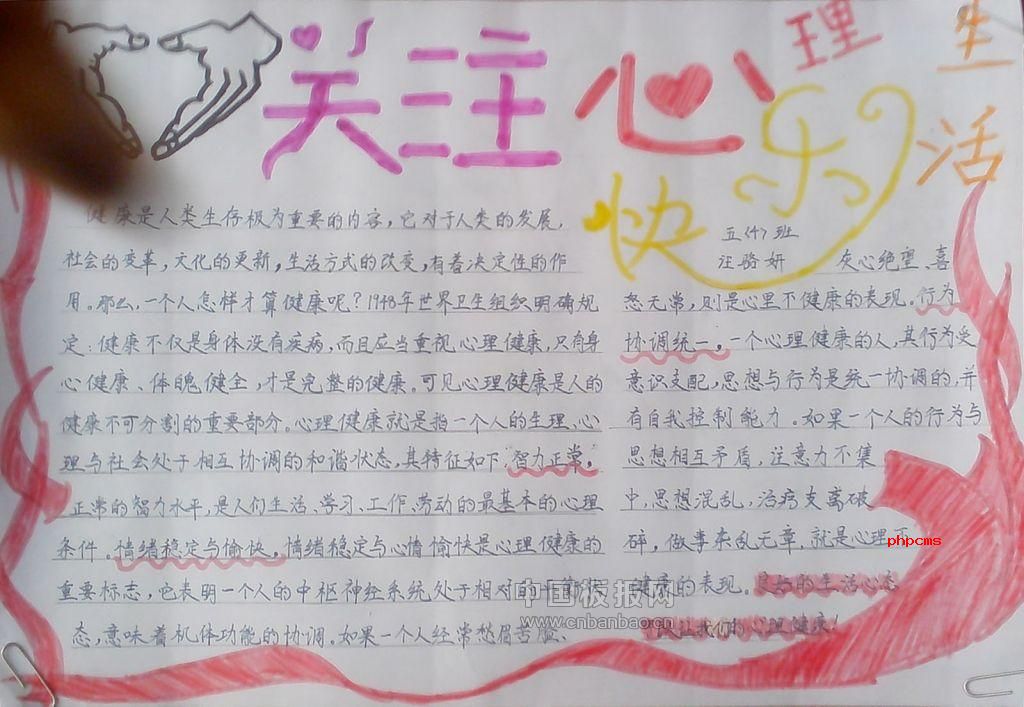 关注心理
生活
快乐
五〈4〉班
汪骆妍
健康是人类生存极为重要的内容，它对于人类的发展，
社会的变革，文化的更新，生活方式的改变，有着决定性的作
用。那么，一个人怎样才算健康呢？1948年世界卫生组织明确规
定：健康不仅是身体没有疾病，而且应当重视心理健康，只有身
心健康、体魄健全，才是完整的健康。可见心理健康是人的
健康不可分割的重要部分。心理健康就是指一个人的生理、心
理与社会处于相互协调的和谐状态，其特征如下：智力正常，
正常的智力水平，是人们生活、学习、工作、劳动的最基本的心理
条件。情绪稳定与愉快，情绪稳定与心情愉快是心理健康的
重要标志，它表明一个人的中枢神经系统处于相对的平衡状
态，意味着机体功能的协调。如果一个人经常愁眉苦脸、
灰心绝望、喜
怒无常，则是心里不健康的表现。行为
协调统一，一个心理健康的人，其行为受
意识支配，思想与行为是统一协调的，并
有自我控制能力。如果一个人的行为与
思想相互矛盾，注意力不集
中，思想混乱，语言支离破
碎，做事杂乱无章，就是心理不
健康的表现。良好的生活心态
让我们的心理健康！
phpcms
中国板报网
www.cnbanbao.cn